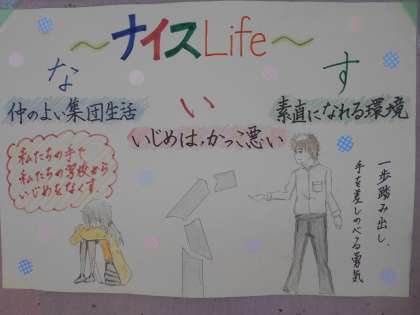 ～ナイスLife～
な
仲のよい集団生活
い
いじめは、かっこ悪い
す
素直になれる環境
私たちの手で
私たちの学校から
いじめをなくす。
一歩踏み出し、
手を差しのべる勇気